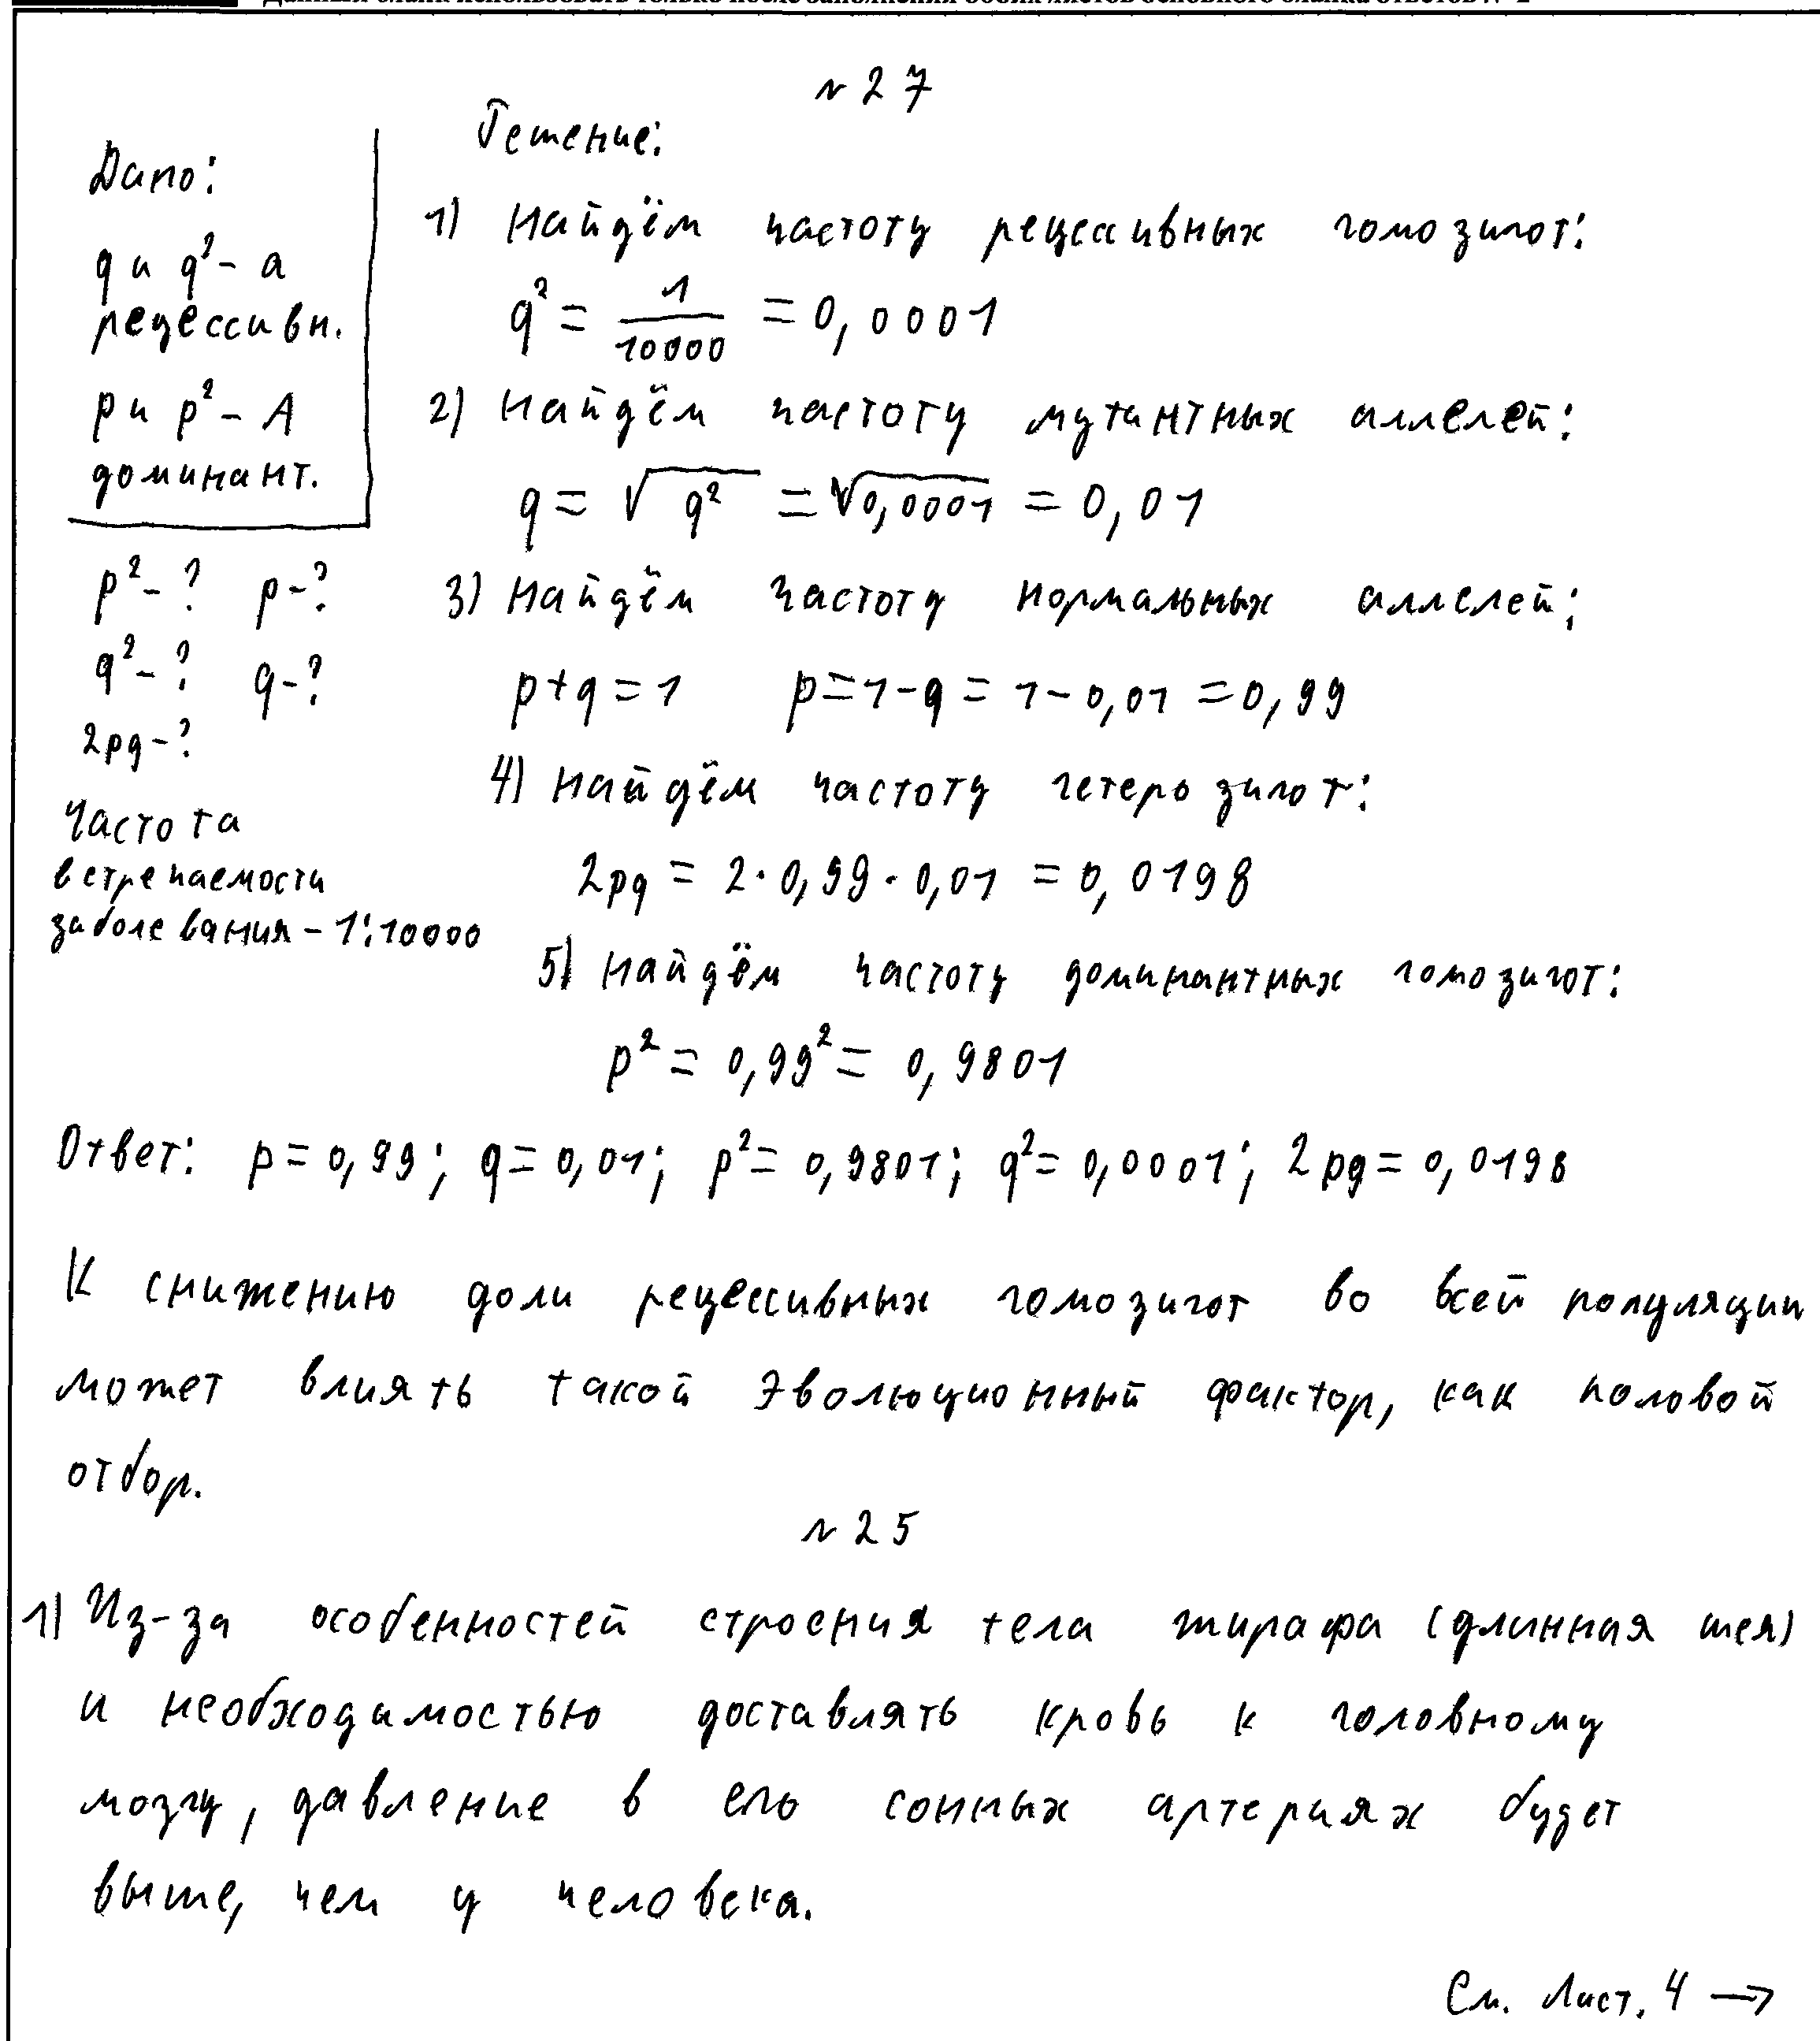 Данный бланк использовать только после заполнения обоих листов основного бланка ответов № 2
№ 27
Дано:
q и q² - a
рецессивн.
p и p² - A
доминант.
p² - ? p - ?
q² - ? q - ?
2pq - ?
Частота
встречаемости
заболевания - 1:10000
Решение:
1) Найдём частоту рецессивных гомозигот:
q² = 1/10000 = 0,0001
2) Найдём частоту мутантных аллелей:
q = √q² = √0,0001 = 0,01
3) Найдём частоту нормальных аллелей:
p + q = 1 p = 1 - q = 1 - 0,01 = 0,99
4) Найдём частоту гетерозигот:
2pq = 2 · 0,99 · 0,01 = 0,0198
5) Найдём частоту доминантных гомозигот:
p² = 0,99² = 0,9801
Ответ: p = 0,99; q = 0,01; p² = 0,9801; q² = 0,0001; 2pq = 0,0198
К снижению доли рецессивных гомозигот во всей популяции
может влиять такой эволюционный фактор, как половой
отбор.
№ 25
1) Из-за особенностей строения тела жирафа (длинная шея)
и необходимостью доставлять кровь к головному
мозгу, давление в его сонных артериях будет
выше, чем у человека.
См. Лист. 4 →